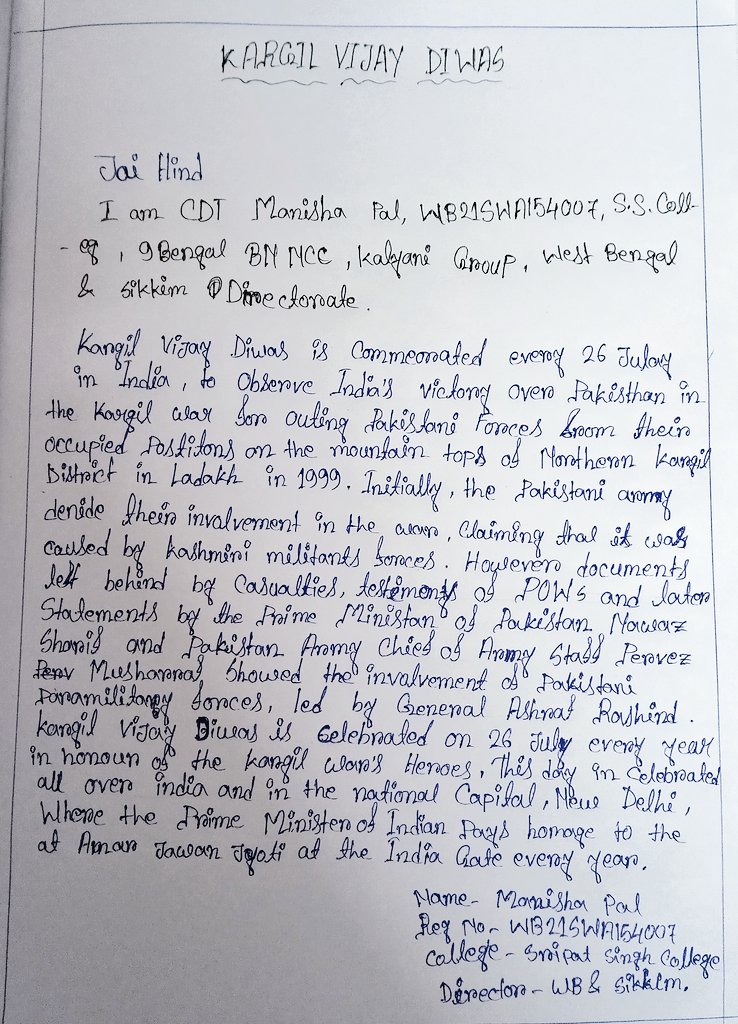 KARGIL VIJAY DIWAS
Jai Hind
I am CDT Manisha Pal, WB21SWA154007, S.S. Coll-
- eg, 9 Bengal BN NCC, Kalyani Group, West Bengal
& Sikkim Directorate.
Kargil Vijay Diwas is Commeorated every 26 Julay
in India, to Observe India's victory over Pakisthan in
the Kargil war for outing Pakistani Forces from their
occupied Postitons on the mountain tops of Northern Kargil
District in Ladakh in 1999. Initially, the Pakistani army
denide their involvement in the war, Claiming that it was
caused by Kashmiri militants forces. However documents
left behind by Casualties, testimonys of POWs and later
Statements by the Prime Ministar of Pakistan Nawaz
Sharif and Pakistan Army Chief of Army Staff Pervez
Perv Musharraf, Showed the involvement of Pakistani
Paramilitary forces, led by General Ashraf Rashind.
Kargil Vijay Diwas is Celebrated on 26 July every year
in honour of the Kargil war's Heroes. This day in Celebrated
all over india and in the national Capital, New Delhi,
Where the Prime Minister of Indian Pays homage to the
at Amar Jawan Jyoti at the India Gate every year.
Name- Manisha Pal
Reg No.- WB21SWA154007
College - Sripat Singh College
Director - WB & Sikkim.